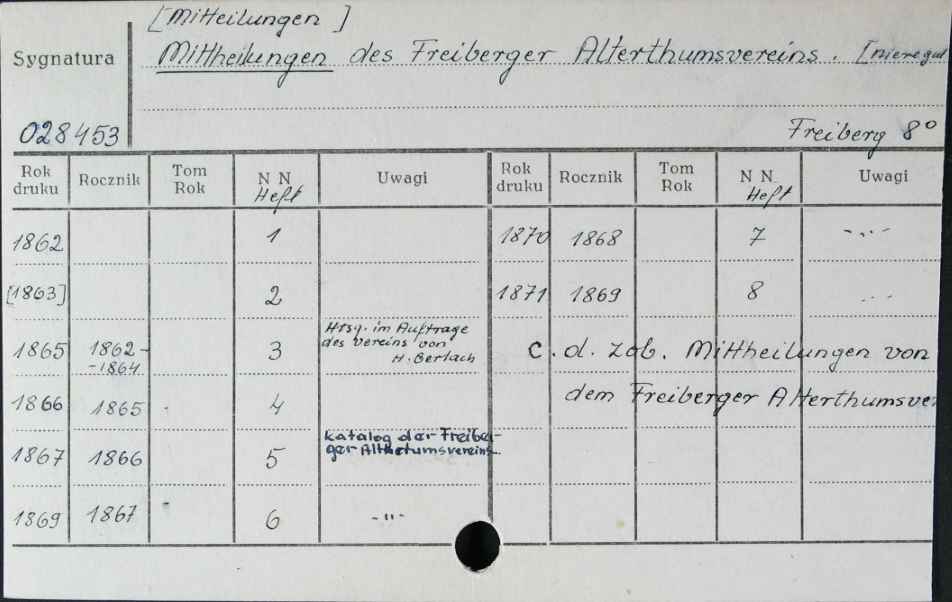 [Mitteilungen ]
Sygnatura
Mittheilungen des Freiberger Alterthumsvereins. [nieregul
028453
Freiberg 8°
Rok druku Rocznik Tom Rok N N Heft Uwagi Rok druku Rocznik Tom Rok N N Heft Uwagi
1862 1 1870 1868 7 -„-
[1863] 2 1871 1869 8 -„-
1865 1862-
-1864 3 Hrsg. im Auftrage
des Vereins von
H. Gerlach
c. d. zob. Mittheilungen von
1866 1865 4 dem Freiberger Alterthumsve
1867 1866 5 Katalog der Freiber-
ger Althetumsvereins.
1869 1867 6 -"-